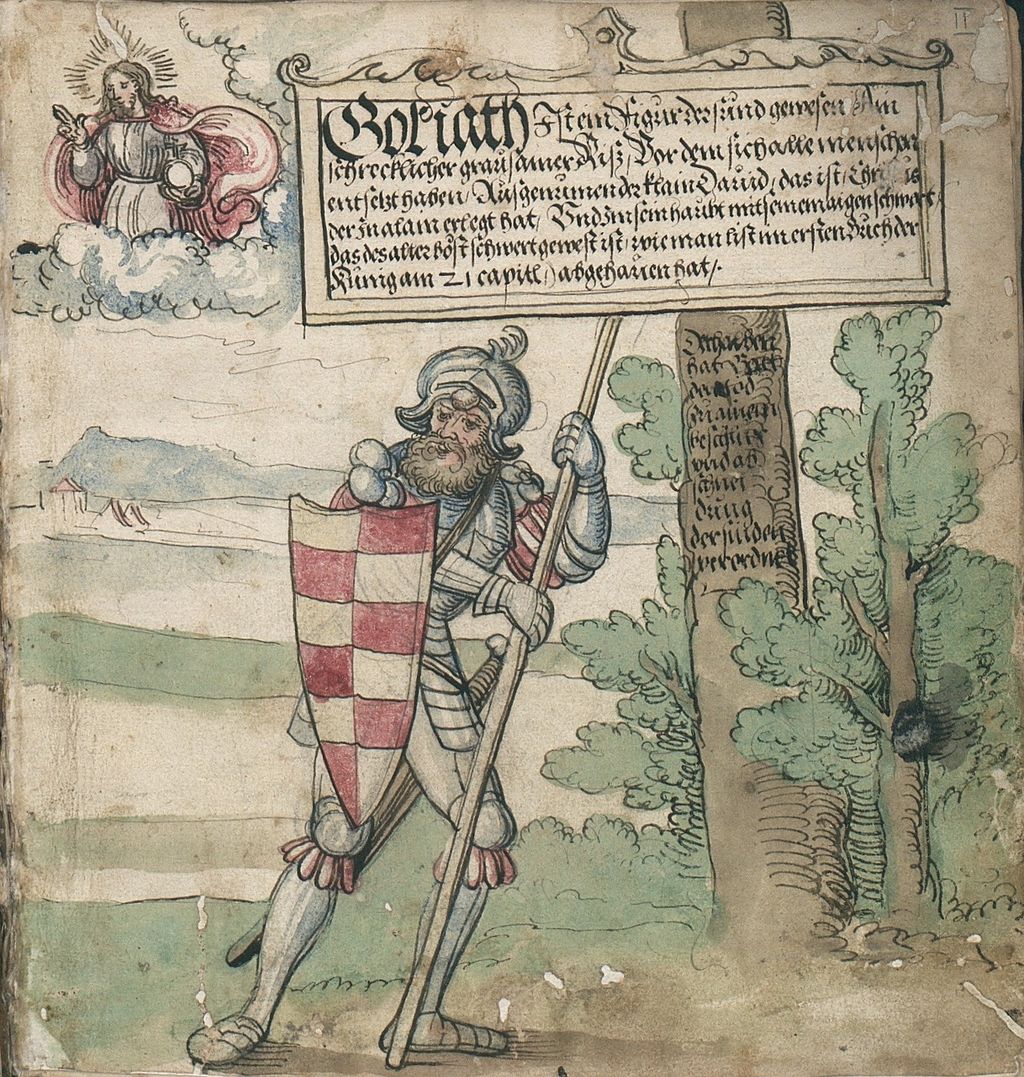 II
Goliath Ist ein Figur der sünd gewesen / Ain
schrecklicher grausamer Riß / Vor dem sich alle menschen
entsetzt haben / Ausgenumen der klain Dauid / das ist / Christus
der In alain erlegt hat / Vnd Im sein haubt mit seinem aigen schwert /
das des alter böst schwert gewest ist / wie man list im ersten Buch der
Künig am 21 capitl /) abgehauen hat /.
Derhalben
hat
da God
zu ainem
beschluß
vnd ab
schnei
dung
der sünden
verordnet